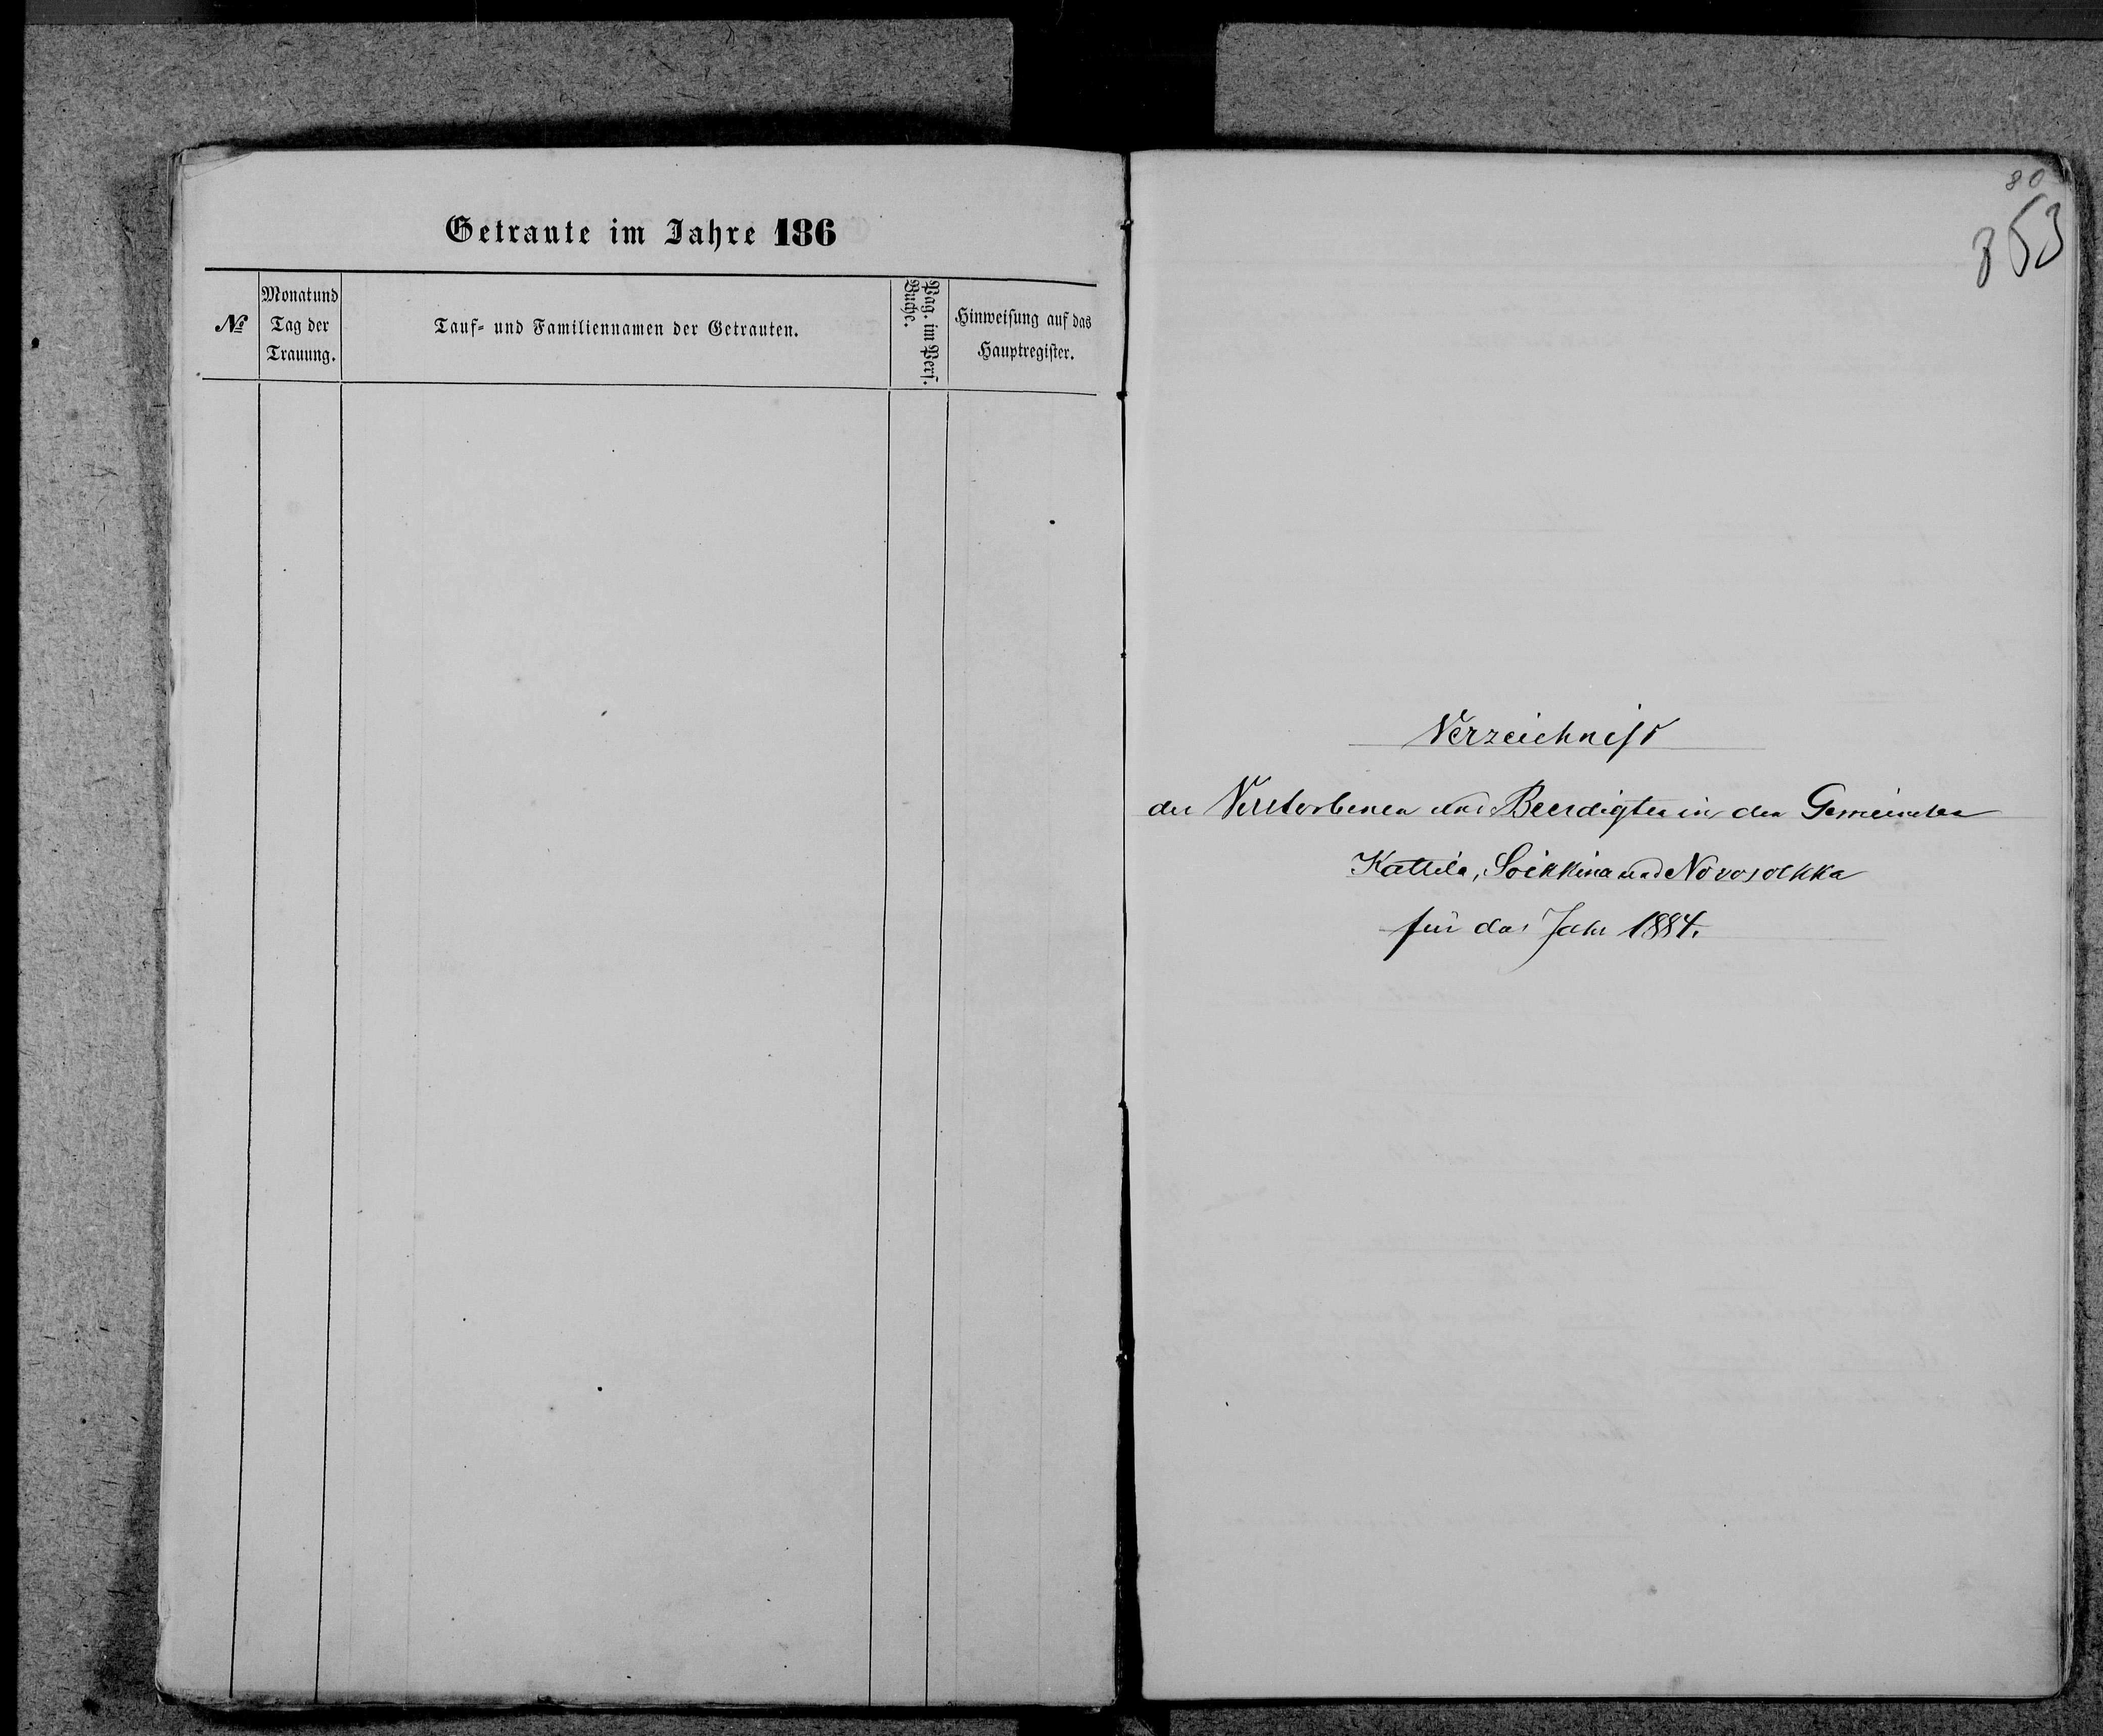 Getraute im Jahre 186
№
Monat und
Tag der
Trauung.
Tauf- und Familiennamen der Getrauten.
Pag. im Pers.
Buche.
Hinweisung auf das
Hauptregister.
80
853
Verzeichniss
der Verstorbenen und Beerdigten in den Gemeinden
Kattila, Soikkina und Novosolkka
für das Jahr 1884.